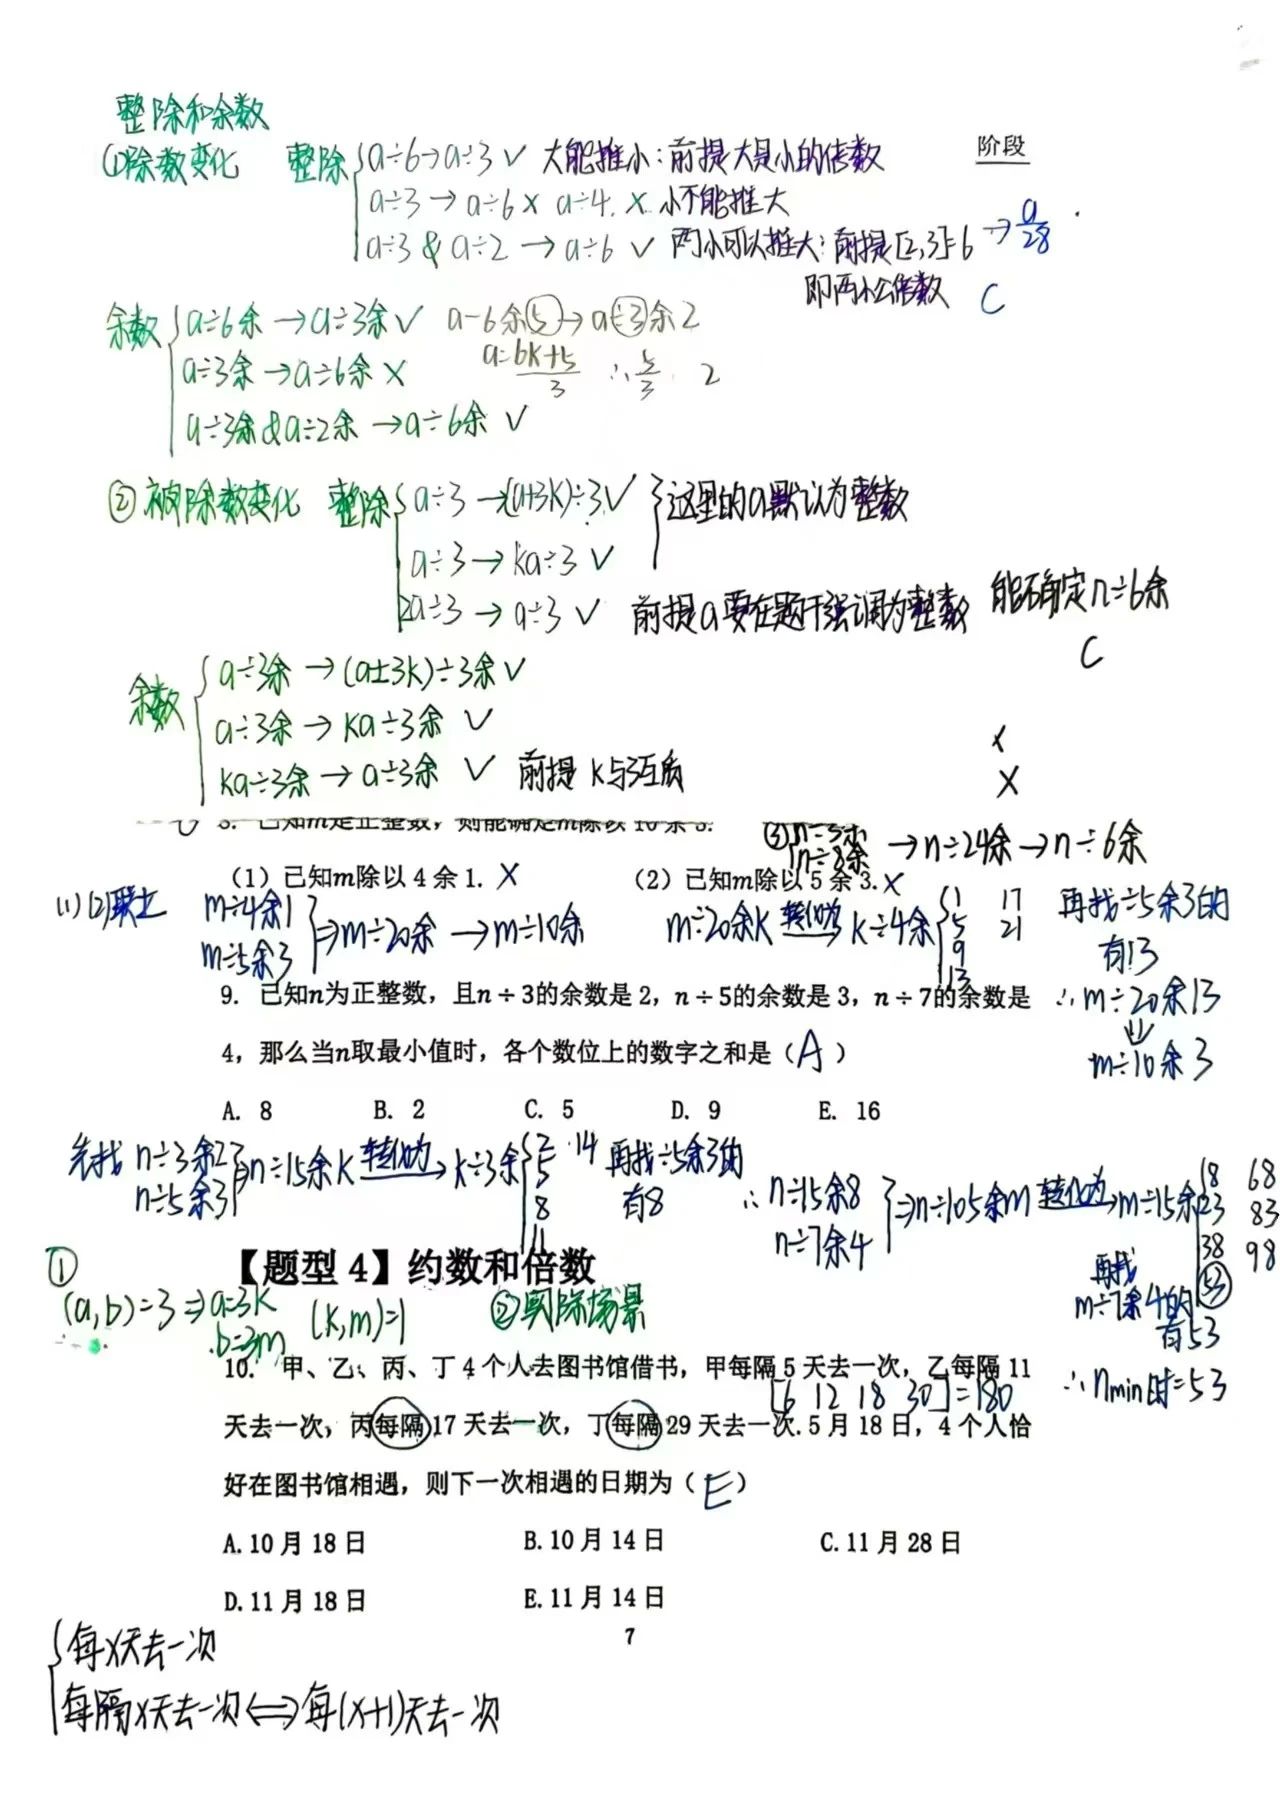 整除和余数
阶段
(1)除数变化 整除 a÷6→a÷3 ✓ 大能推小:前提大是小的倍数
a÷3→a÷6 × a÷4. × 小不能推大
a÷3 & a÷2 → a÷6 ✓ 两小可以推大:前提[2,3]=6 → a/28
即两小公倍数 C
余数 a÷6余→a÷3余✓ a-6余5→a÷3余2
a÷3余→a÷6余 × a=6k+5/3 ∴5/3 2
a÷3余&a÷2余→a÷6余 ✓
② 被除数变化 整除 a÷3→(a+3k)÷3✓ 这里的a默认为整数
a÷3→ka÷3 ✓
2a÷3→a÷3 ✓ 前提a要在题干强调为整数 能否确定n÷6余
C
余数 a÷3余→(a±3k)÷3余✓
a÷3余→ka÷3余 ✓ ×
ka÷3余→a÷3余 ✓ 前提 k与3互质 ×
8. 已知m是正整数,则能确定m除以10余3.
③ n÷3余
n÷8余 →n÷24余→n÷6余
(1)已知m除以4余1. × (2)已知m除以5余3.×
(1)(2)联立 m÷4余1
m÷5余3 ⇒m÷20余→m÷10余 m÷20余k 转化为 k÷4余 1 5 9 13 17 21 再找÷5余3的
有13
9. 已知n为正整数,且n÷3的余数是2,n÷5的余数是3,n÷7的余数是 ∴m÷20余13
⇓
4,那么当n取最小值时,各个数位上的数字之和是(A) m÷10余3
A. 8 B. 2 C. 5 D. 9 E. 16
先找 n÷3余2
n÷5余3 ⇒n÷15余k 转化为 k÷3余 2 5 8 11 14 再找÷5余3的
有8
∴n÷15余8
n÷7余4 ⇒n÷105余m 转化为 m÷15余 8 23 38 53 68 83 98
再找
m÷7余4的
有53
∴nmin时=53
①
【题型 4】约数和倍数
(a,b)=3⇒a=3k
b=3m (k,m)=1 ②实际场景
10. 甲、乙、丙、丁4个人去图书馆借书,甲每隔5天去一次,乙每隔11
[6 12 18 30]=180
天去一次,丙每隔17天去一次,丁每隔29天去一次.5月18日,4个人恰
好在图书馆相遇,则下一次相遇的日期为(E)
A.10月18日 B.10月14日 C.11月28日
D.11月18日 E.11月14日
7
每x天去一次
每隔x天去一次⇔每(x+1)天去一次